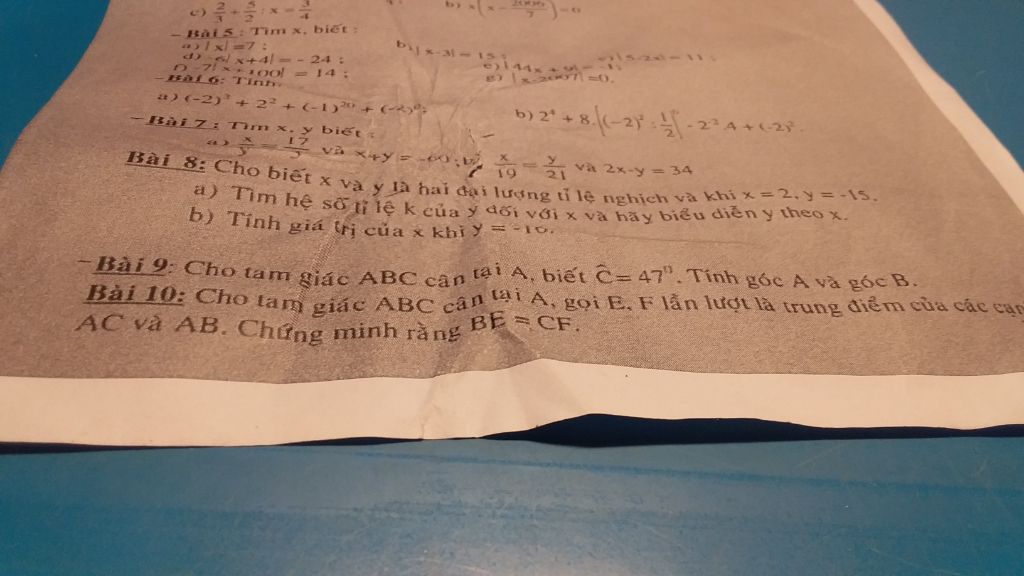 c) 2/3 + 5/2 : x = 3/4 b) x(x -
- Bài 5 : Tìm x, biết :
a) |x| =7 ; b) |x-3| = 15 ; |5-2x| = 11 ;
|x+4| = - 24 ; e) |44x + 9| =
|x+100| = 14 ; g) |x-2007| =0.
-Bài 6: Tính:
a) (-2)³ + 2² + (-1)²⁰ +
b) 2⁴ + 8. (-2)² : 1/2 - 2⁻³.4 + (-2)².
-Bài 7 : Tìm x, y biết :
a) x/y = và x+y = -60 ; b) x/19 = y/21 và 2x-y = 34
Bài 8: Cho biết x và y là hai đại lượng tỉ lệ nghịch và khi x = 2, y = -15.
a) Tìm hệ số tỉ lệ k của y đối với x và hãy biểu diễn y theo x.
b) Tính giá trị của x khi y = -10.
-Bài 9: Cho tam giác ABC cân tại A, biết Ĉ = 47⁰. Tính góc A và góc B.
Bài 10: Cho tam giác ABC cân tại A, gọi E, F lần lượt là trung điểm của các
AC và AB. Chứng minh rằng BE = CF.